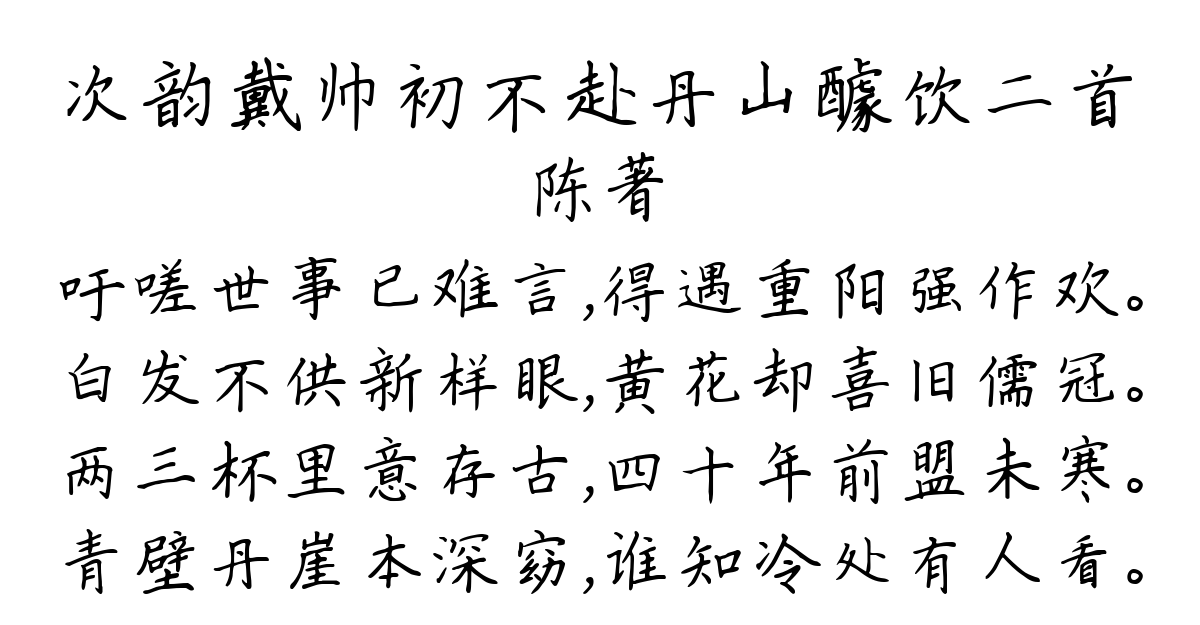 次韵戴帅初不赴丹山醵饮二首
陈著
吁嗟世事已难言,得遇重阳强作欢。
白发不供新样眼,黄花却喜旧儒冠。
两三杯里意存古,四十年前盟未寒。
青壁丹崖本深窈,谁知冷处有人看。